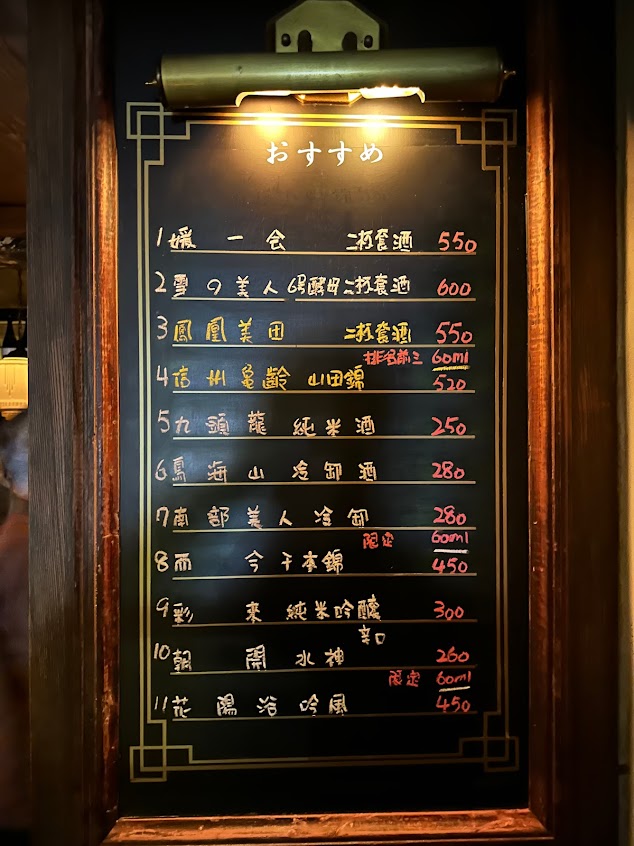 おすすめ
1 媛 一会 二杯套酒 550
2 雪の美人 6号酵母 二杯套酒 600
3 鳳凰美田 二杯套酒 550
排名前三 60ml
4 信州亀齢 山田錦 520
5 九頭龍 純米酒 250
6 鳥海山 冷卸酒 280
7 南部美人 冷卸 280
限定 60ml
8 而今 千本錦 450
9 彩來 純米吟釀 300
辛口
10 朝開 水神 260
限定 60ml
11 花陽浴 吟風 450